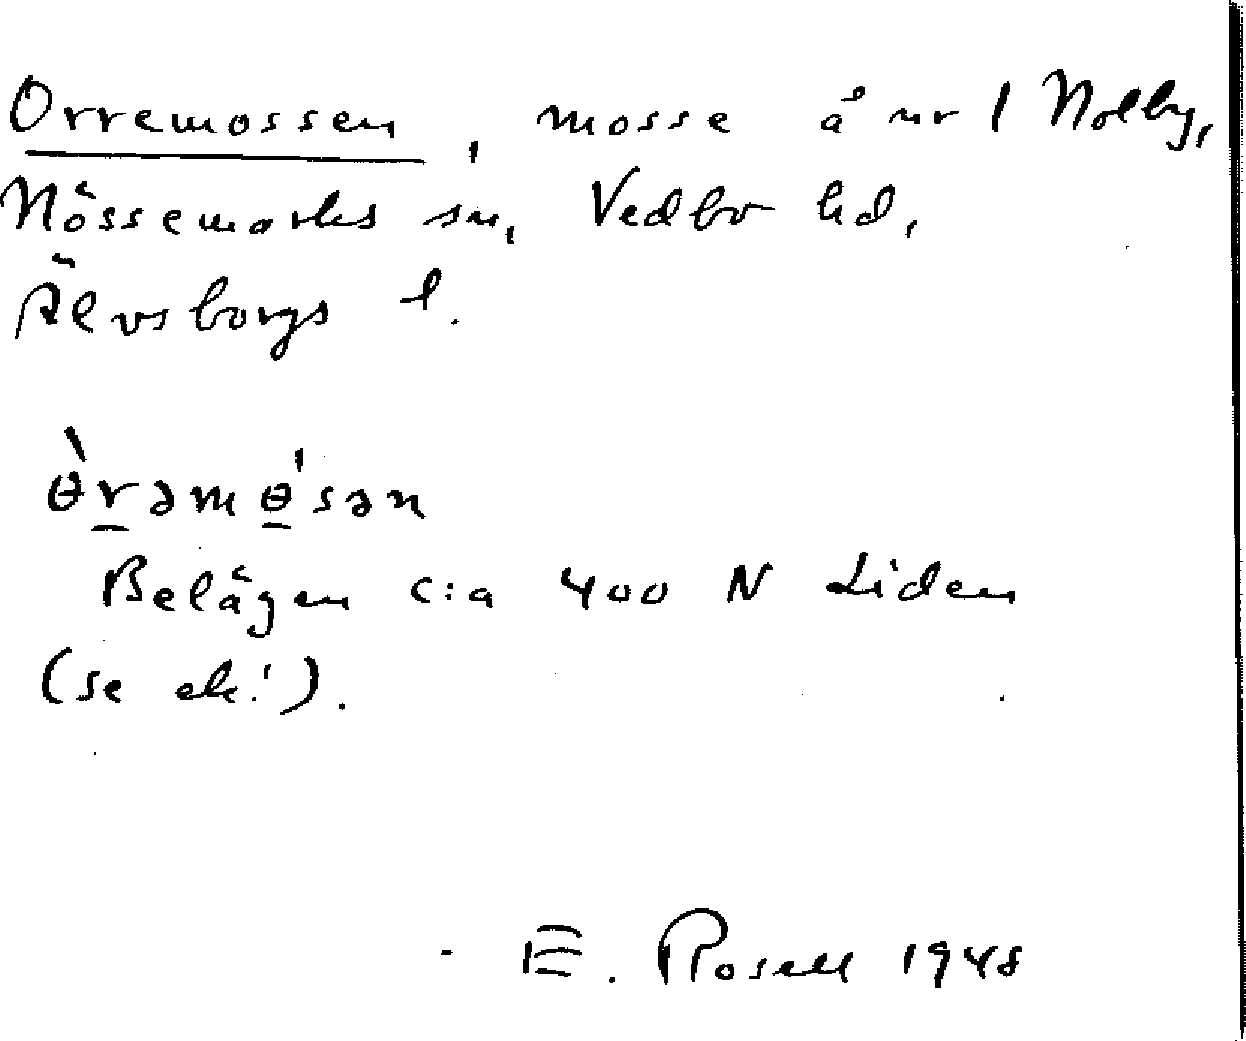 Orremossen, mosse å nr 1 Nolby,
Nössemarks sn, Vedbo hd,
Älvsborgs l.
ɵ̀rəmɵ'sən
Belägen c:a 400 N Liden
(se ek!).
E. Rosell 1948